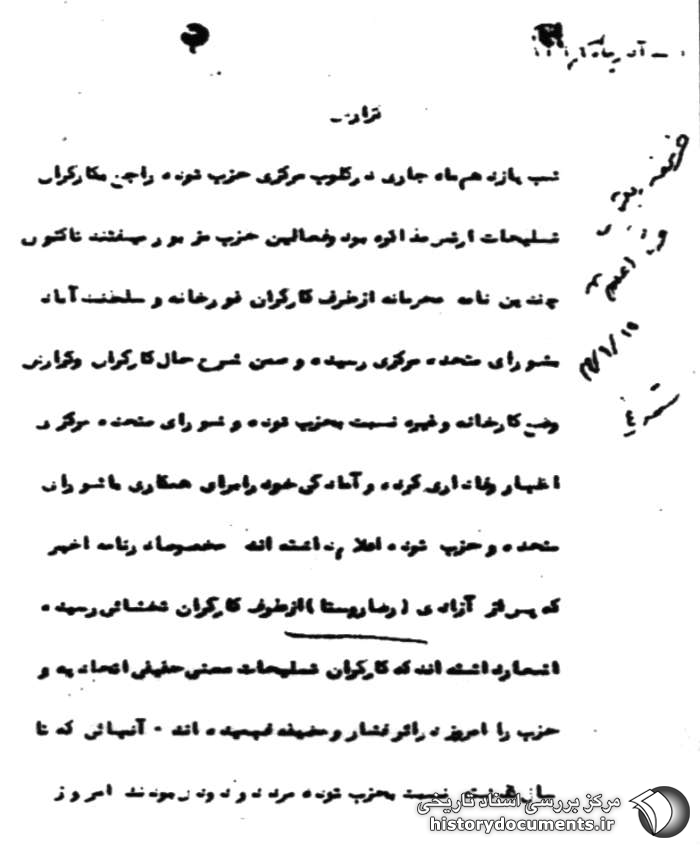 گزارش
شب یازدهم ماه جاری در کلوپ مرکزی حزب توده راجع بکارگران
تسلیحات ارتش مذاکره بود و فعالین حزب مزبور میگفتند تاکنون
چندین نامه محرمانه از طرف کارگران قورخانه و سلطنت آباد
بشورای متحده مرکزی رسیده و ضمن شرح حال کارگران و گزارش
وضع کارخانه و غیره نسبت بحزب توده و شورای متحده مرکزی
اظهار وفاداری کرده و آمادگی خود را برای همکاری با شورای
متحده و حزب توده اعلام داشته اند مخصوصا در نامه اخیر
که پس از آزادی (رضا روستا) از طرف کارگران تسلیحات رسیده
اشعار داشته اند که کارگران تسلیحات معنی حقیقی اتحادیه و
حزب را امروز در اثر فشار و مضیقه فهمیده اند - آنهائی که تا
سال گذشته نسبت بحزب توده مردد و دودل بودند امروز
مرکز بررسی اسناد تاریخی
historydocuments.ir